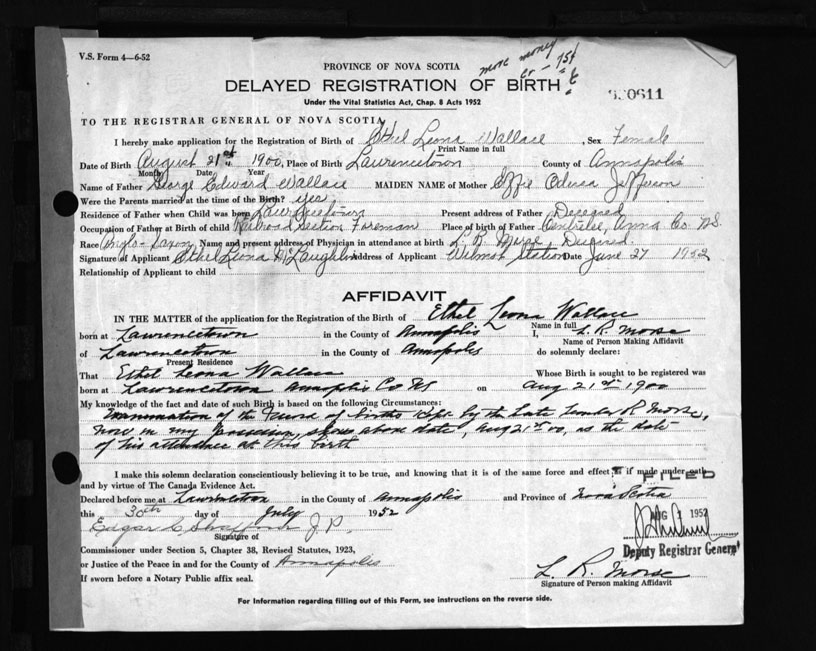 V.S. Form 4—6-52
PROVINCE OF NOVA SCOTIA
more money
75¢
DELAYED REGISTRATION OF BIRTH
Under the Vital Statistics Act, Chap. 8 Acts 1952
TO THE REGISTRAR GENERAL OF NOVA SCOTIA
I hereby make application for the Registration of Birth of Ethel Leona Wallace, Sex Female
Print Name in full
Date of Birth August 21st 1900, Place of Birth Lawrencetown County of Annapolis
Month Date Year
Name of Father George Edward Wallace MAIDEN NAME of Mother Effie Jefferson
Were the Parents married at the time of the Birth? yes
Residence of Father when Child was born Lawrencetown Present address of Father Deceased
Occupation of Father at Birth of child Railroad Section Foreman Place of birth of Father Centrelea, Anna Co. N.S.
Race Anglo-Saxon Name and present address of Physician in attendance at birth L. R. Morse, Deceased.
Signature of Applicant Ethel Leona McLaughlin Address of Applicant Wilmot Station Date June 27 1952
Relationship of Applicant to child
AFFIDAVIT
IN THE MATTER of the application for the Registration of Birth of Ethel Leona Wallace
Name in full
born at Lawrencetown in the County of Annapolis I, L. R. Morse
Name of Person Making Affidavit
of Lawrencetown in the County of Annapolis do solemnly declare:
Present Residence
That Ethel Leona Wallace Whose Birth is sought to be registered was
born at Lawrencetown Annapolis Co NS on Aug 21st 1900
My knowledge of the fact and date of such Birth is based on the following Circumstances:
Examination of the record of births kept by the late R Morse,
now in my possession, shows above date, Aug 21st 00, as the date
of his attendance at this birth
I make this solemn declaration conscientiously believing it to be true, and knowing that it is of the same force and effect as if made under oath
and by virtue of The Canada Evidence Act.
FILED
Declared before me at Lawrencetown in the County of Annapolis and Province of Nova Scotia
this 30th day of July 1952
AUG 1 1952
Edgar J.P.
Signature of
Deputy Registrar General
Commissioner under Section 5, Chapter 38, Revised Statutes, 1923,
or Justice of the Peace in and for the County of Annapolis
L. R. Morse
If sworn before a Notary Public affix seal.
Signature of Person making Affidavit
For Information regarding filling out of this Form, see instructions on the reverse side.